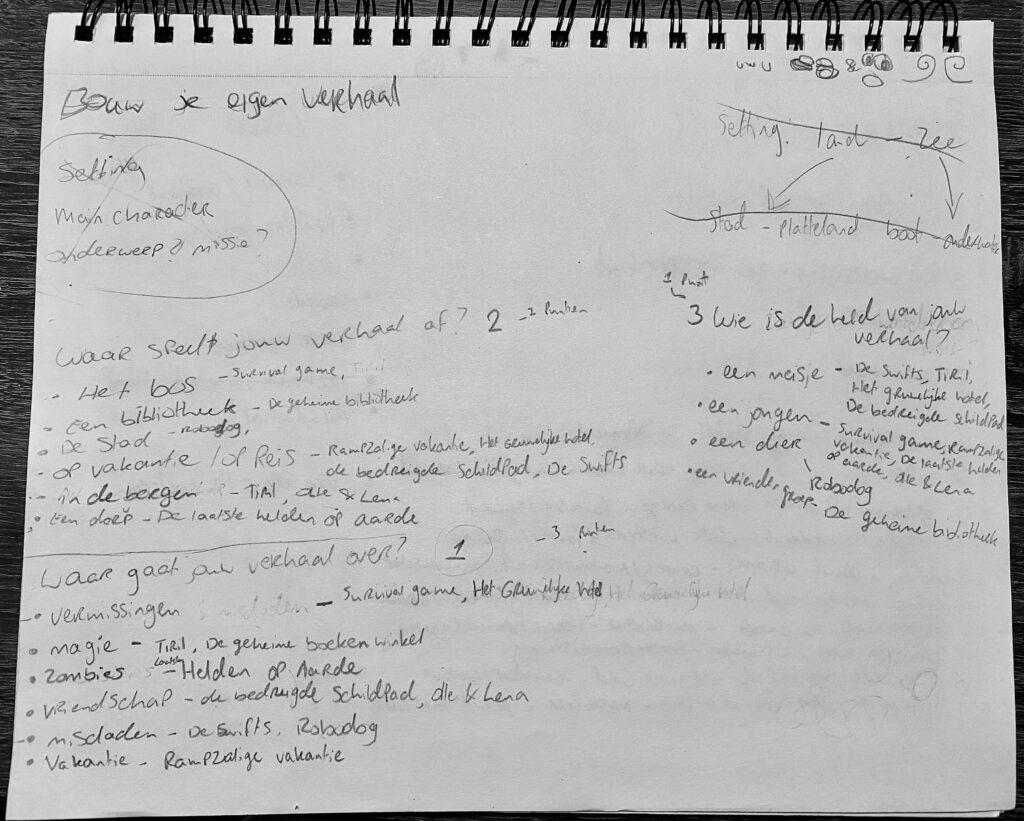 Bouw je eigen verhaal
Setting
Main character
onderwerp? missie?
Setting: land - zee
stad - platteland boot - onderwater
Waar speelt jouw verhaal af? 2 - 2 Punten
• Het bos - Survival game,
• Een bibliotheek - De geheime bibliotheek
• De Stad - Robodog,
• op vakantie / op Reis - Rampzalige vakantie, Het Gruwelijke hotel,
de bedreigde Schildpad, De Swifts
- in de bergen - Tiril, Olle & Lena
• Een dorp - De laatste helden op aarde
Waar gaat jouw verhaal over? 1 - 3 Punten
• vermissingen - Survival game, Het Gruwelijke hotel
• magie - Tiril, De geheime boeken winkel
• Zombies - Laatste Helden op Aarde
• vriendschap - de bedreigde Schildpad, Olle & Lena
• misdaden - De Swifts, Robodog
• Vakantie - Rampzalige vakantie
1 Punt
3 Wie is de held van jouw
verhaal?
• een meisje - De Swifts, Tiril,
Het gruwelijke hotel,
De bedreigde schildpad
• een jongen - Survival game, Rampzalige
vakantie, De laatste helden
op aarde, Olle & Lena
• een dier
Robodog
• een vrienden groep - De geheime bibliotheek